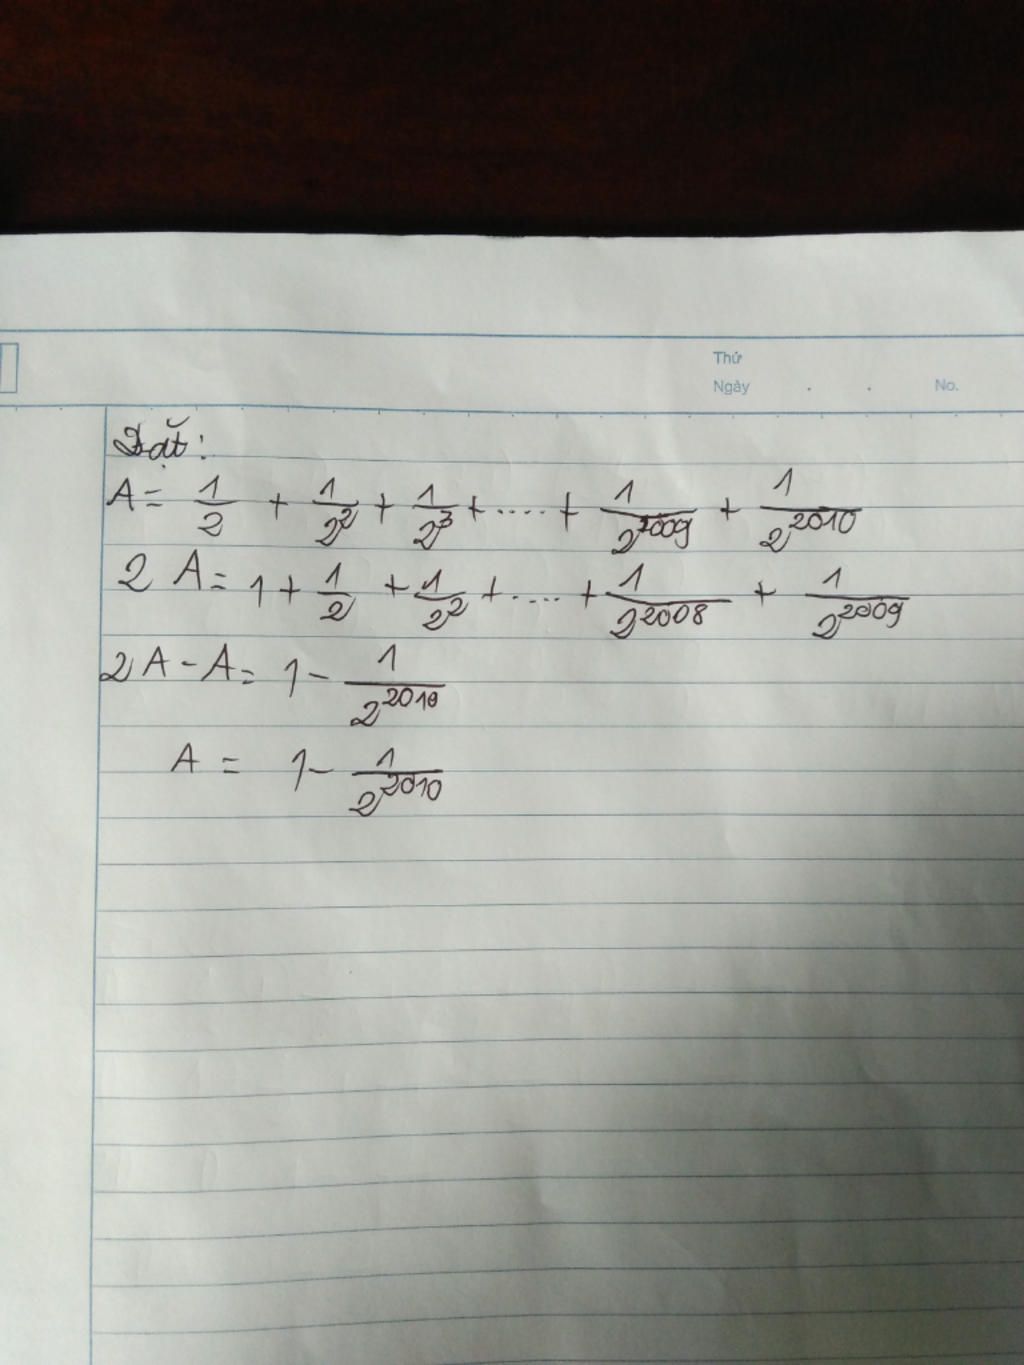 Thứ
Ngày . . No.
Đặt:
A = 1/2 + 1/2^2 + 1/2^3 + .... + 1/2^2009 + 1/2^2010
2 A = 1 + 1/2 + 1/2^2 + .... + 1/2^2008 + 1/2^2009
2A - A = 1 - 1/2^2010
A = 1 - 1/2^2010